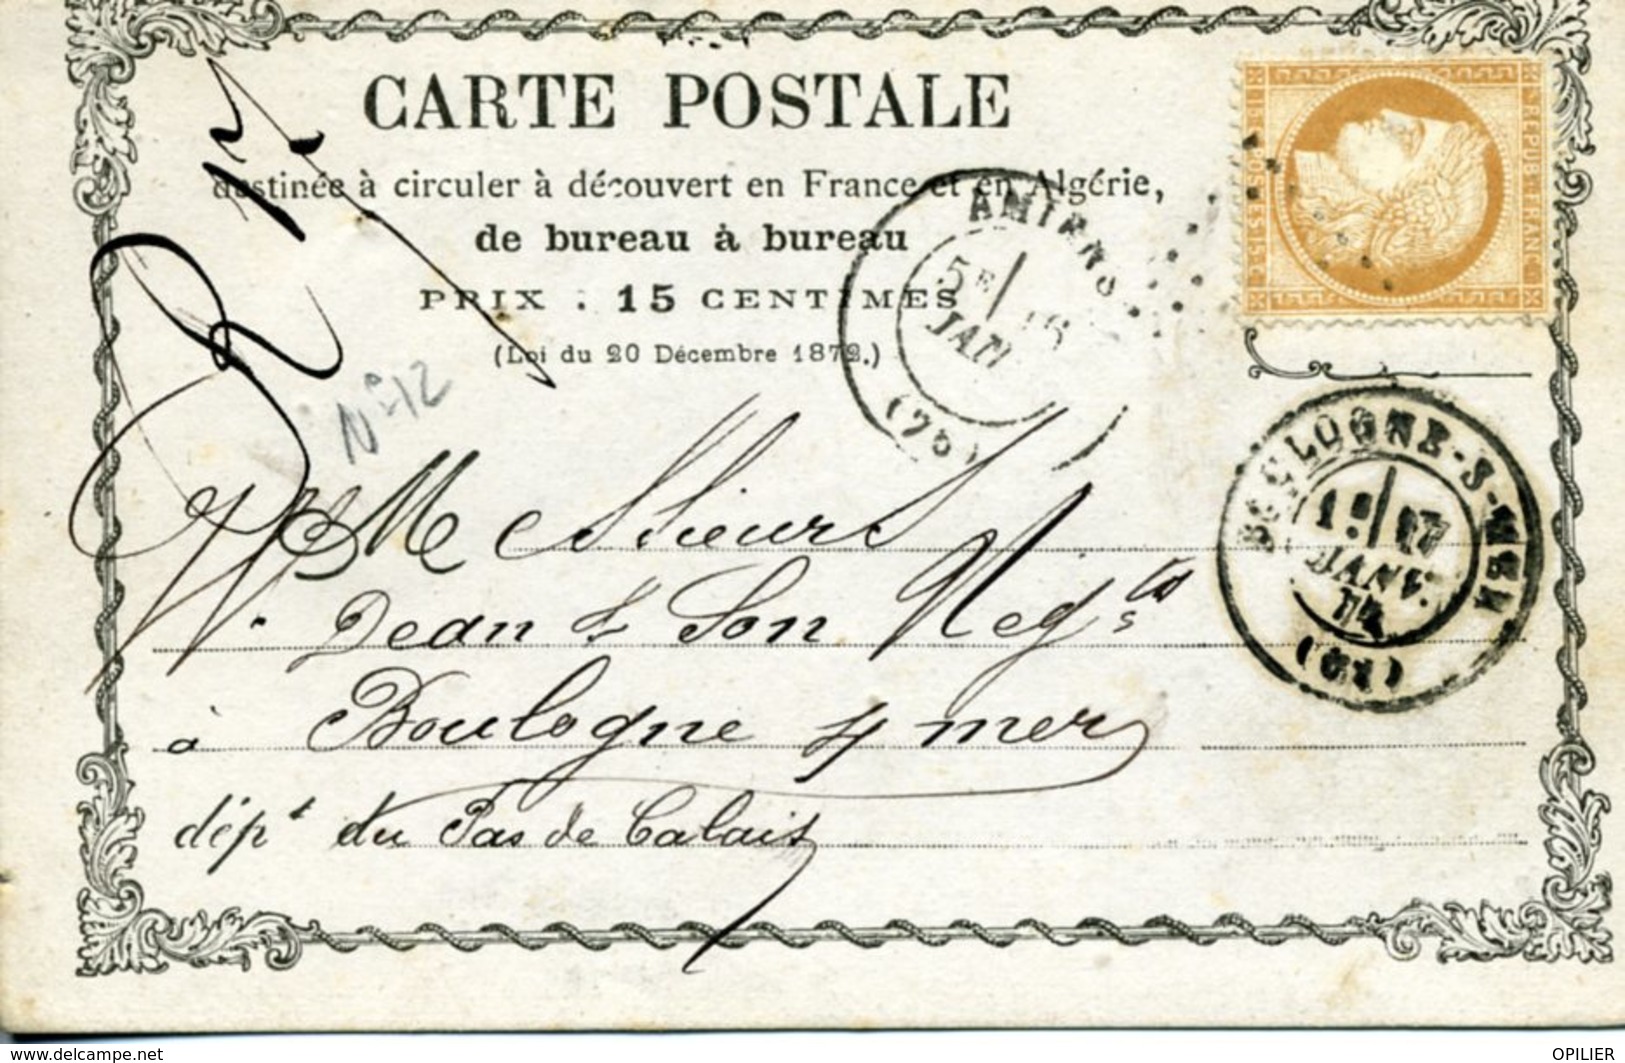 CARTE POSTALE
destinée à circuler à découvert en France et en Algérie,
de bureau à bureau
PRIX : 15 CENTIMES
(Loi du 20 Décembre 1872.)
REPUB. FRANC.
AMIENS
5E
JAN
(76)
R 17
N° 12
BOULOGNE-S-MER
1E 17
JANV.
74
(61)
Messieurs
Dean & Son Negts
à Boulogne s/ mer
dépt du Pas de Calais
www.delcampe.net
OPILIER